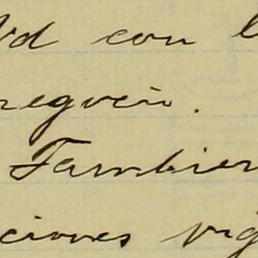 Vd con l
regvein.
Tambien
ciones vig